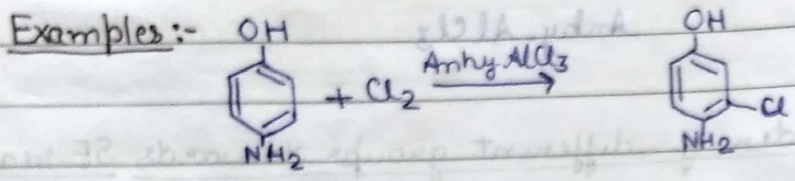 Examples:-
OH
+ Cl2
Anhy. AlCl3
NH2
OH
Cl
NH2